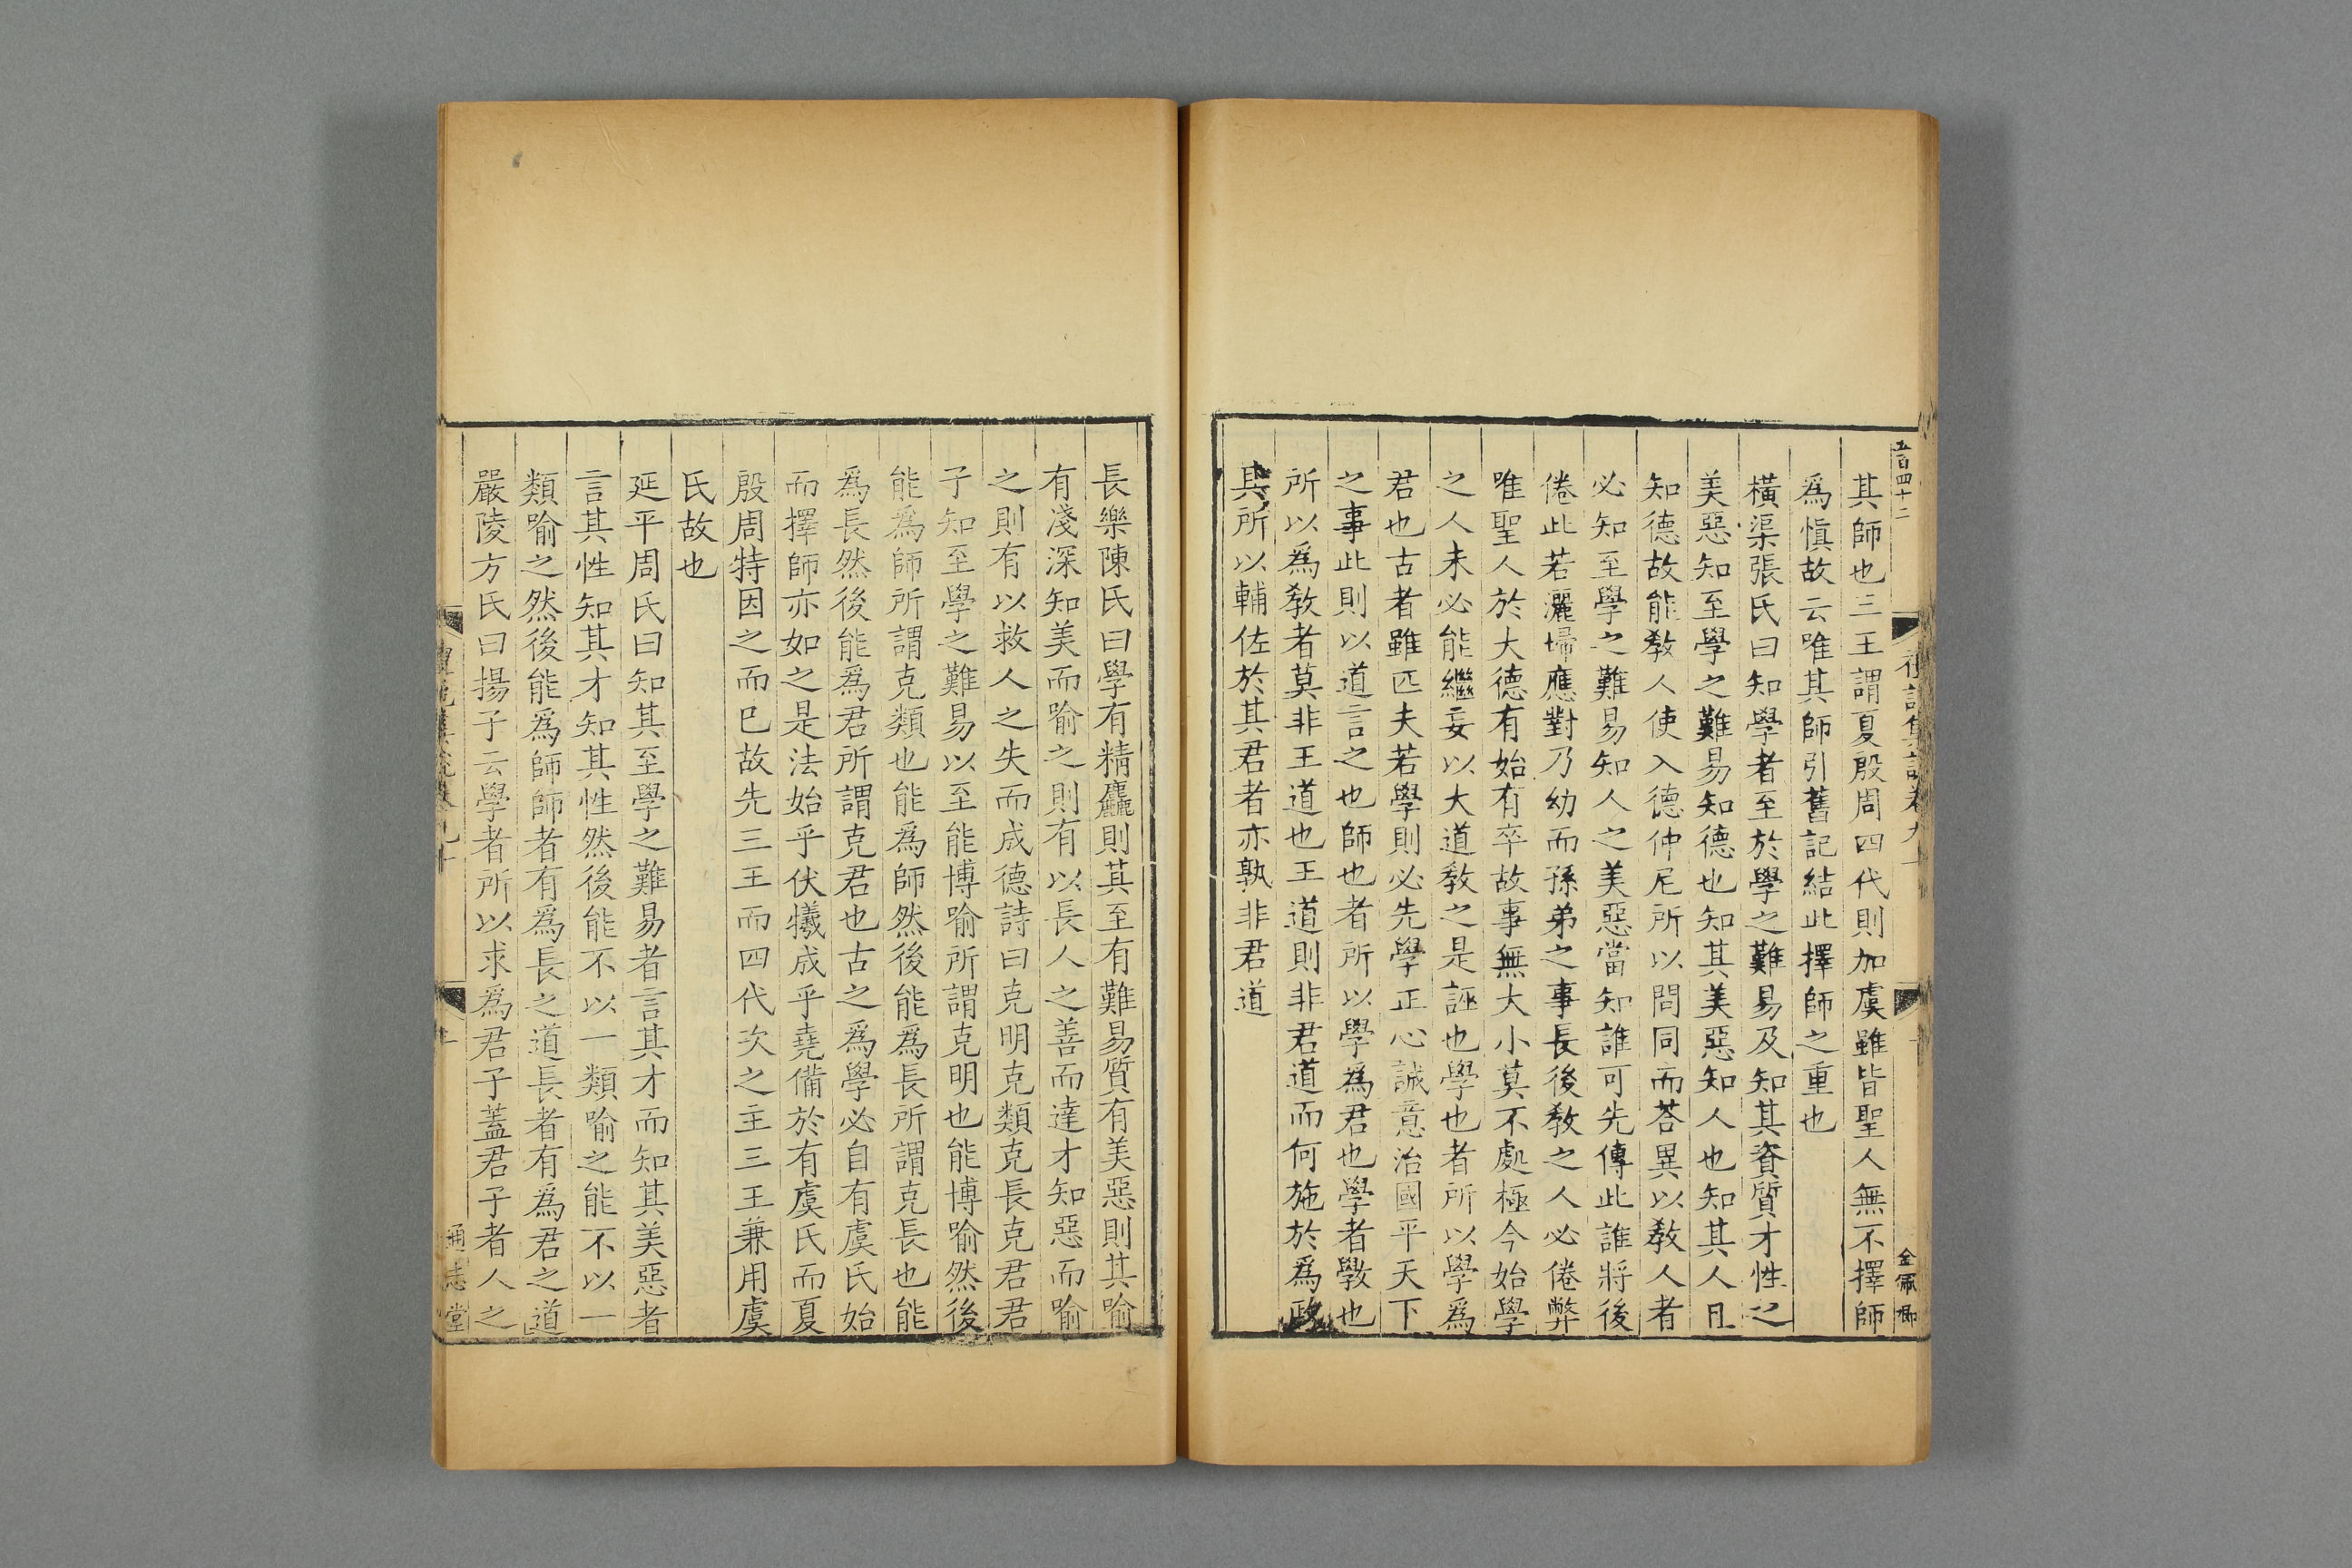 五百四十二
金佩
其師也三王謂夏殷周四代則加虞雖皆聖人無不擇師
爲慎故云唯其師引舊記結此擇師之重也
橫渠張氏曰知學者至於學之難易及知其資質才性之
美惡知至學之難易知德也知其美惡知人也知其人且
知德故能敎人使入德仲尼所以問同而荅異以敎人者
必知至學之難易知人之美惡當知誰可先傳此誰將後
倦此若灑埽應對乃幼而孫弟之事長後敎之人必倦弊
唯聖人於大德有始有卒故事無大小莫不處極今始學
之人未必能繼妄以大道敎之是誣也學也者所以學爲
君也古者雖匹夫若學則必先學正心誠意治國平天下
之事此則以道言之也師也者所以學爲君也學者斆也
所以爲敎者莫非王道也王道則非君道而何施於爲政
其所以輔佐於其君者亦孰非君道
長樂陳氏曰學有精麤則其至有難易質有美惡則其喻
有淺深知美而喻之則有以長人之善而達才知惡而喻
之則有以救人之失而成德詩曰克明克類克長克君君
子知至學之難易以至能博喻所謂克明也能博喻然後
能爲師所謂克類也能爲師然後能爲長所謂克長也能
爲長然後能爲君所謂克君也古之爲學必自有虞氏始
而擇師亦如之是法始乎伏犧成乎堯備於有虞氏而夏
殷周特因之而巳故先三王而四代次之主三王兼用虞
氏故也
延平周氏曰知其至學之難易者言其才而知其美惡者
言其性知其才知其性然後能不以一類喻之能不以一
類喻之然後能爲師師者有爲長之道長者有爲君之道
嚴陵方氏曰揚子云學者所以求爲君子蓋君子者人之
通志堂